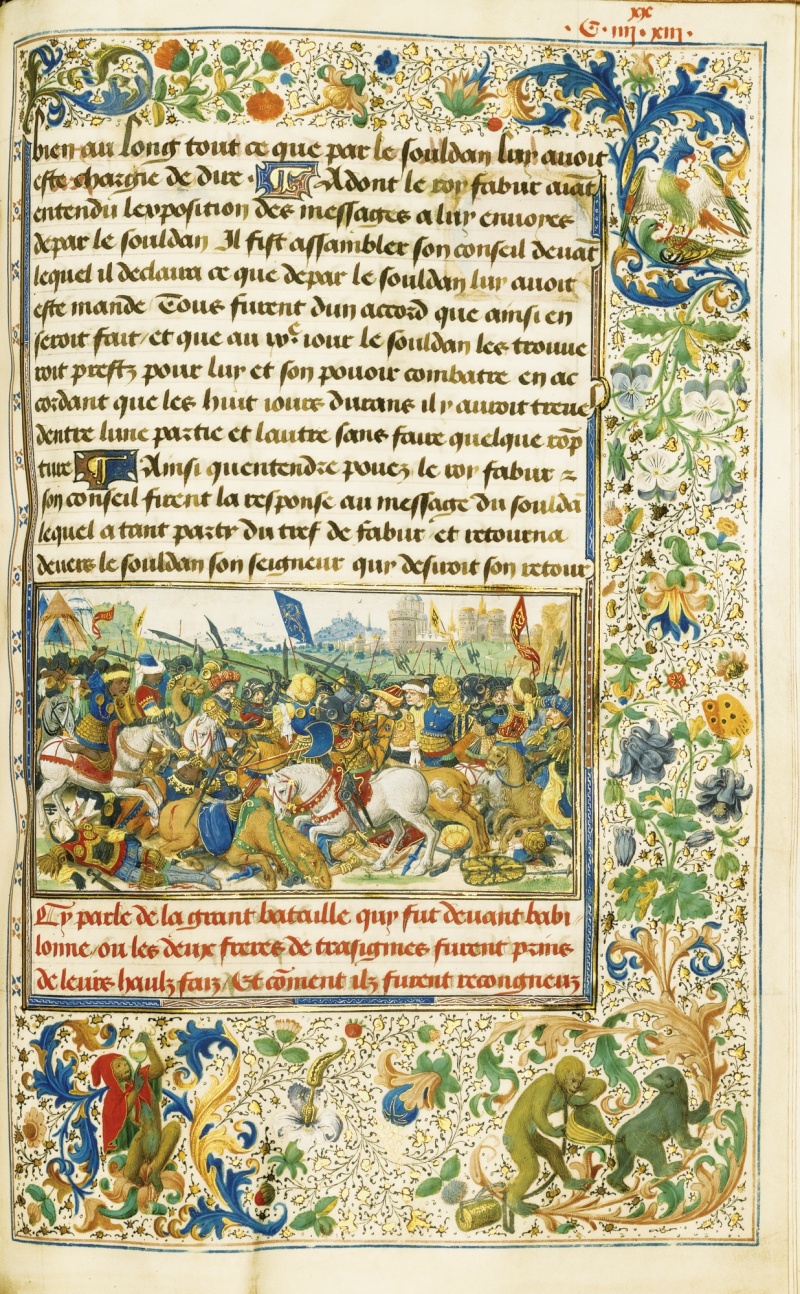 xx
· C · iiii · xiii ·
bien au long tout ce que par le souldan luy auoit
este chargie de dire · Adont le roy fabur aiāt
entendu lexposition des messages a luy enuoyes
depar le souldan Il fist assambler son conseil deuāt
lequel il declaira ce que depar le souldan luy auoit
este mande Tous furent dun accord que ainsi en
seroit fait / et que au iour le souldan les trouue
roit prestz pour luy et son pouoir combatre en ac
cordant que les huit iours durans il y auroit treue
dentre lune partie et lautre sans faire quelque rōp
ture Ainsi quentendre pouez le roy fabur z
son conseil firent la response au message du souldā
lequel atant party du tref de fabur et retourna
deuers le souldan son seigneur quy desiroit son retour
Cy parle de la grant bataille quy fut deuant babi
lonne / ou les deux freres de trasignies furent prins
de leurs haulz faiz / Et cōment ilz furent recongneuz